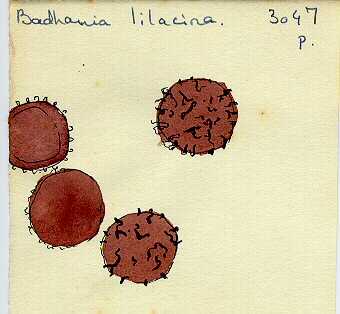 Badhamia lilacina. 3047
P.